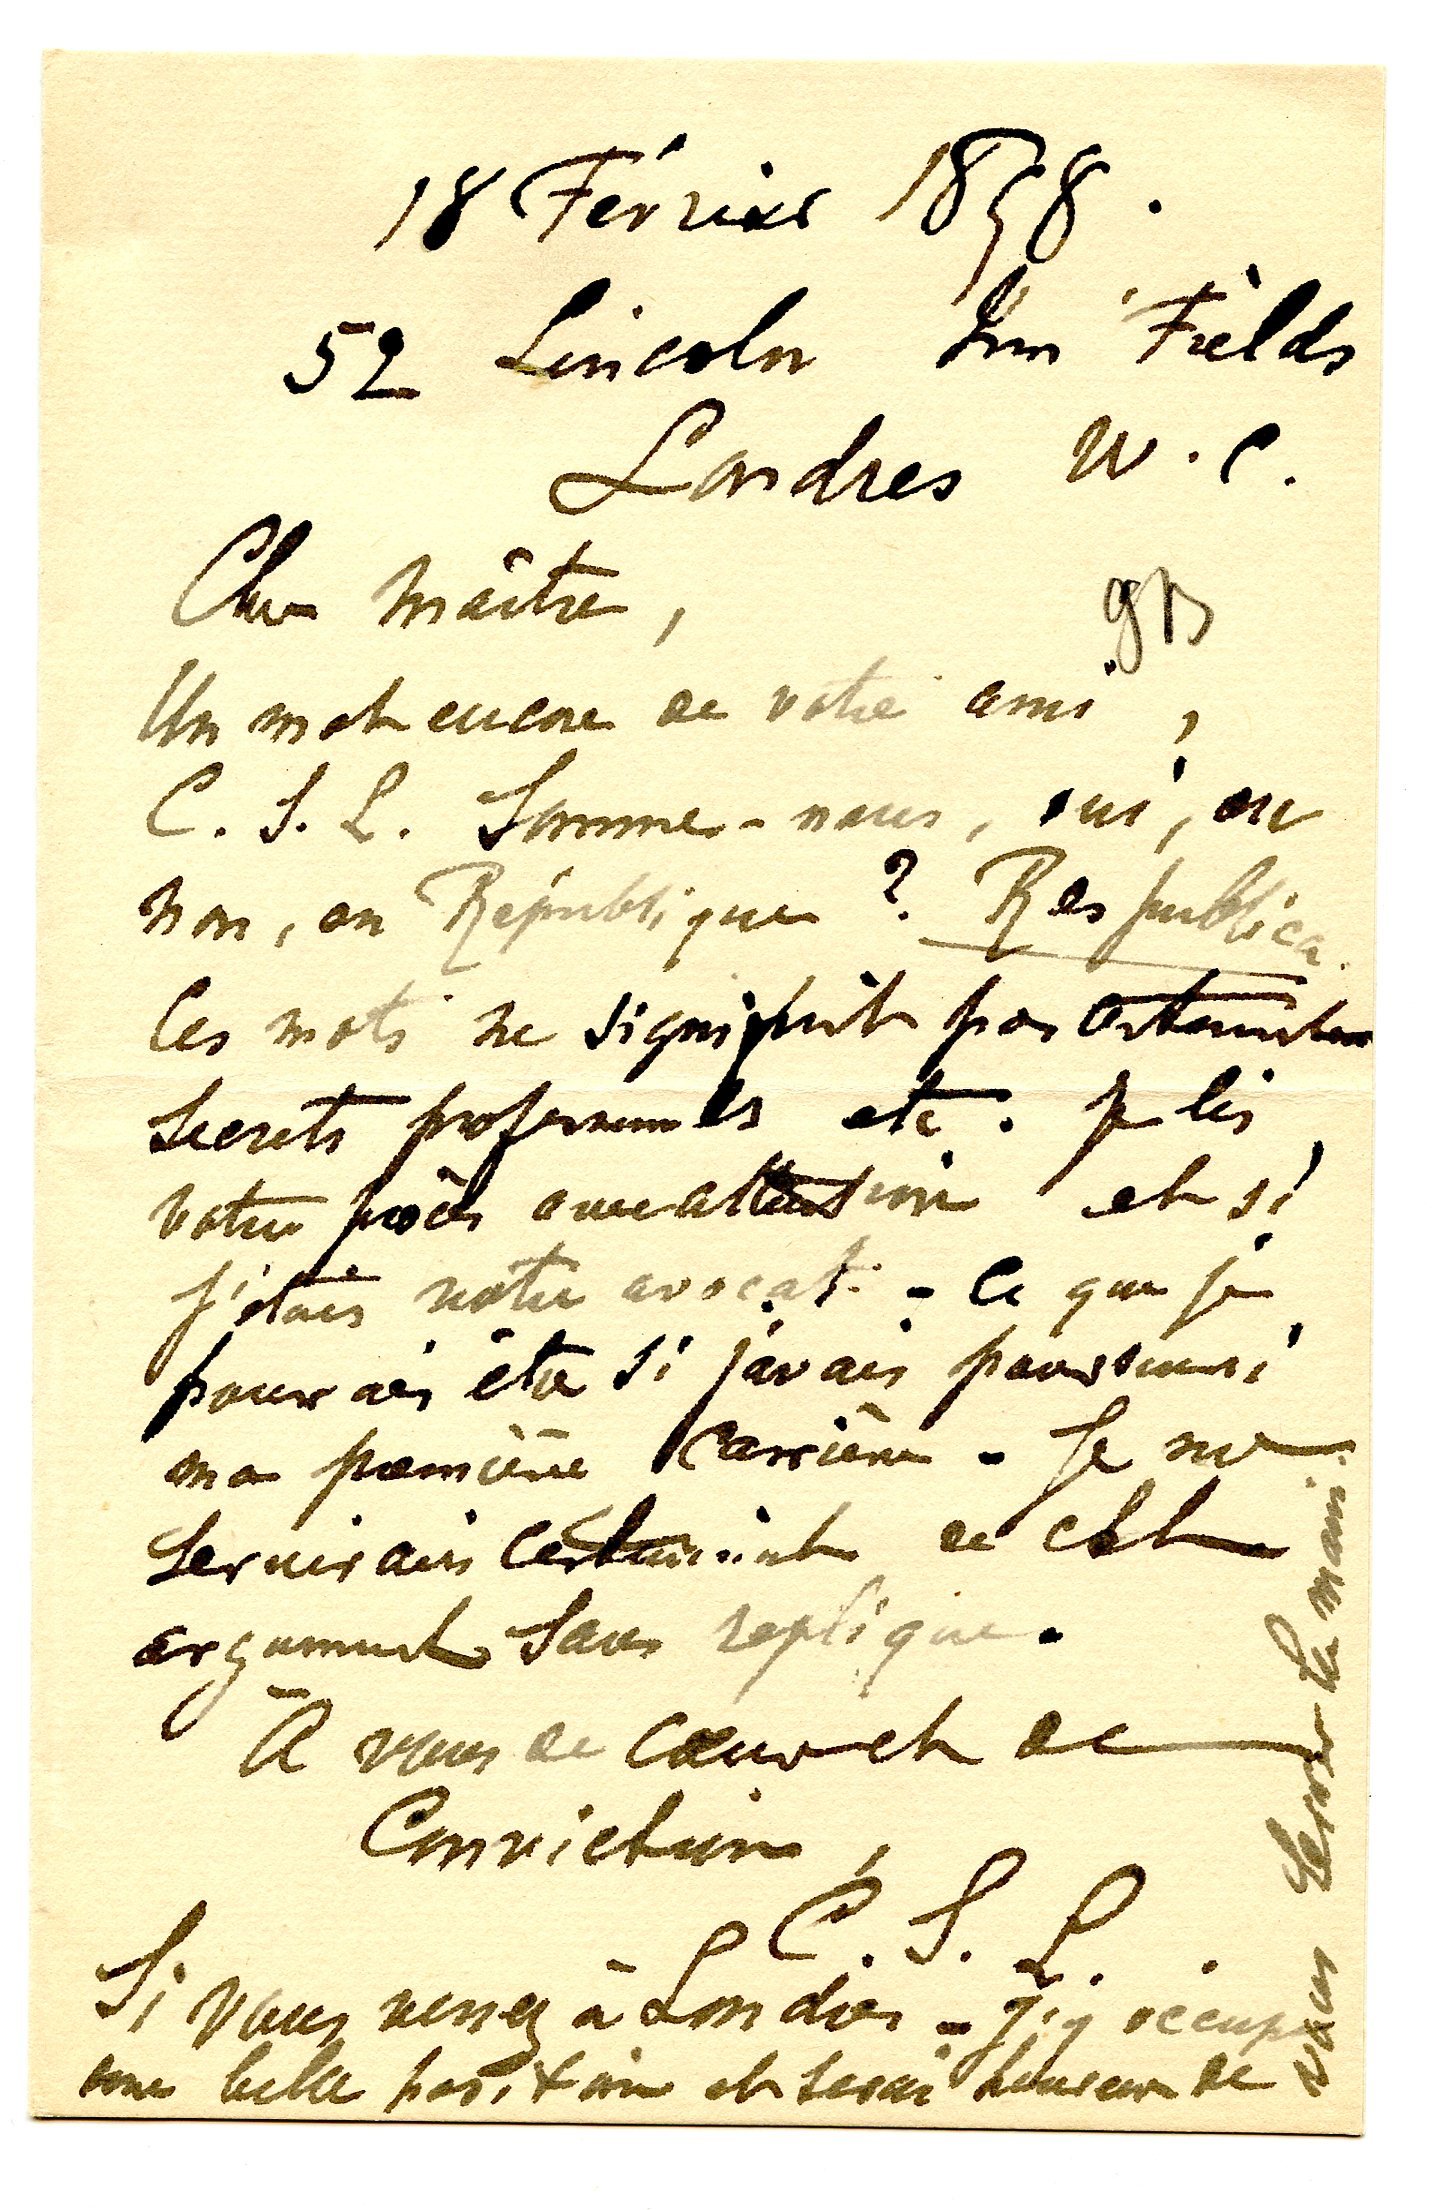 18 Février 1898.
52 Lincoln Inn Fields
Londres W. C.
Cher Maître,
gB
Un mot encore de votre ami,
C. S. L. Sommes-nous, oui, ou
non, en République ? Res publica.
Ces mots ne signifient pas
secrets professionnels etc. Je lis
votre procès avec attention et si
j'étais votre avocat - ce que je
pourrais être si j'avais poursuivi
ma première carrière - Je me
servirais certainement de cet
argument sans replique.
À vous de coeur et de
Conviction,
C. S. L.
Si vous venez à Londres - j'y occupe
une belle position et serai heureux de
vous serrer la main.